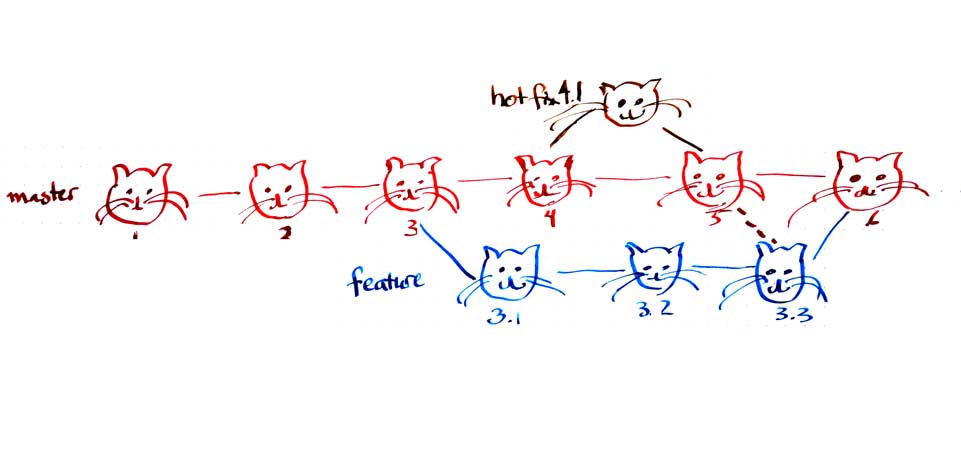 hotfix 4.1
master
1 2 3 4 5 6
feature
3.1 3.2 3.3